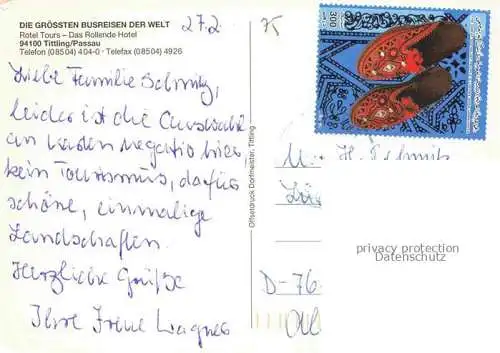 DIE GRÖSSTEN BUSREISEN DER WELT
Rotel Tours – Das Rollende Hotel
94100 Tittling/Passau
Telefon (08504) 404-0 · Telefax (08504) 4926
27.2.
Liebe Familie Schmitz,
leider ist die Auswahl
an Karten negativ hier,
kein Tourismus, dafür
schöne, einmalige
Landschaften.
Herzliche Grüße
Ihre Irene Wagner
Offsetdruck Dorfmeister, Tittling
300
H. Schmitz
D-76
privacy protection
Datenschutz